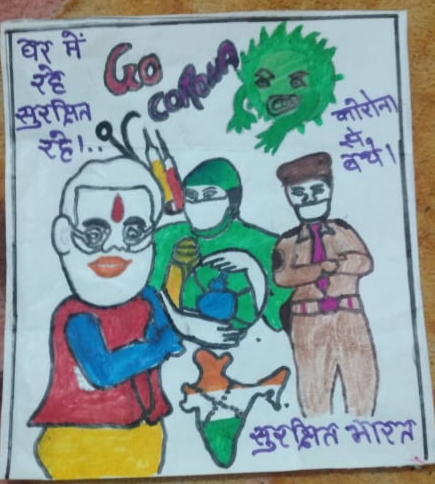 घर में
रहे
सुरक्षित
रहे!..
Go
corona
कोरोना
से
बचे!
सुरक्षित भारत